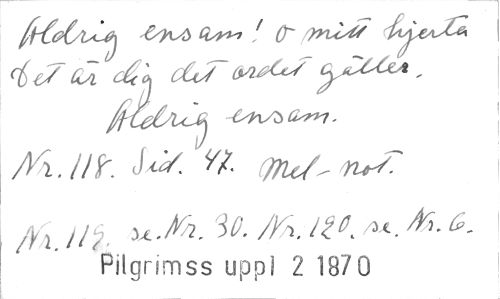 Aldrig ensam! o mitt hjerta
Det är dig det ordet gäller.
Aldrig ensam.
Nr. 118. Sid. 47. Mel-not.
Nr. 119. se. Nr. 30. Nr. 120. se. Nr. 6.
Pilgrimss uppl 2 1870